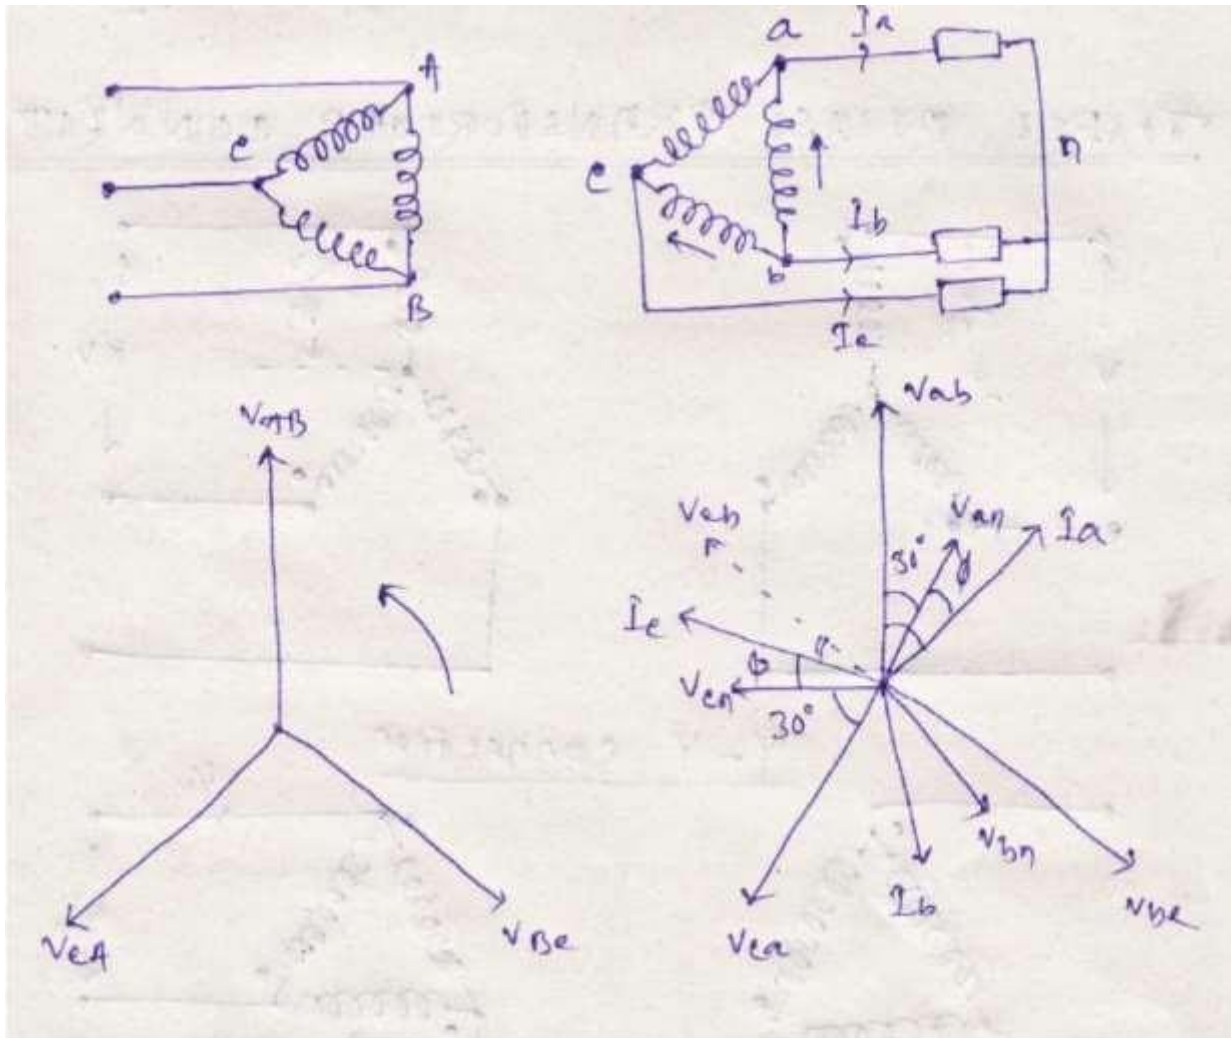 A
C
B
a
Ia
C
n
Ib
b
Ic
VAB
VCA
VBC
Vab
Van
Ia
30°
φ
Vcb
Ic
φ
Vcn
30°
Vca
Ib
Vbn
Vbc